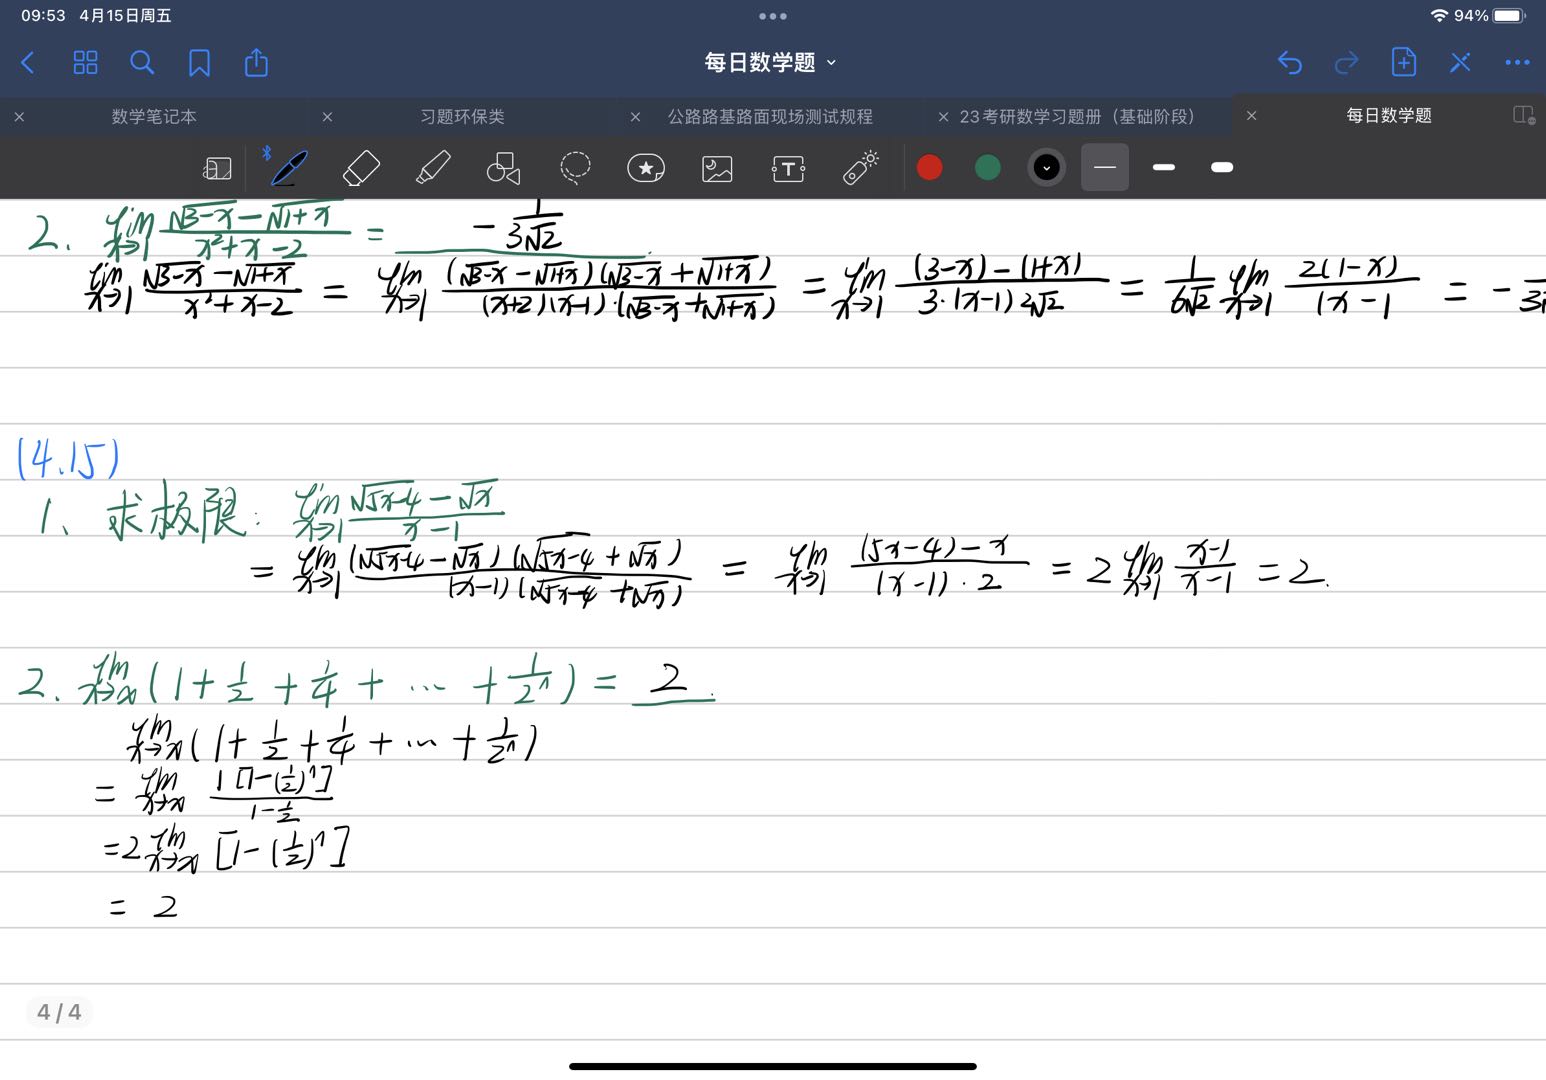 09:53 4月15日周五
94%
每日数学题
数学笔记本 习题环保类 公路路基路面现场测试规程 23考研数学习题册（基础阶段） 每日数学题
2. lim x→1 (√(3-x) - √(1+x))/(x²+x-2) = -1/(3√2)
lim x→1 (√(3-x) - √(1+x))/(x²+x-2) = lim x→1 ((√(3-x) - √(1+x))(√(3-x) + √(1+x)))/((x+2)(x-1)·(√(3-x) + √(1+x))) = lim x→1 ((3-x)-(1+x))/(3·(x-1)2√2) = 1/(6√2) lim x→1 2(1-x)/(x-1 = -
(4.15)
1、求极限: lim x→1 (√(5x-4) - √x)/(x-1)
= lim x→1 ((√(5x-4) - √x)(√(5x-4) + √x))/((x-1)(√(5x-4) + √x)) = lim x→1 ((5x-4)-x)/((x-1)·2) = 2 lim x→1 (x-1)/(x-1) = 2.
2. lim x→∞ (1 + 1/2 + 1/4 + ... + 1/2ⁿ) = 2.
lim x→∞ (1 + 1/2 + 1/4 + ... + 1/2ⁿ)
= lim x→∞ 1[1-(1/2)ⁿ]/(1-1/2)
=2 lim x→∞ [1-(1/2)ⁿ]
= 2
4/4